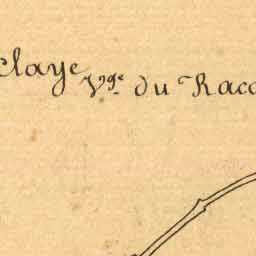 Claye Vge. du Raco